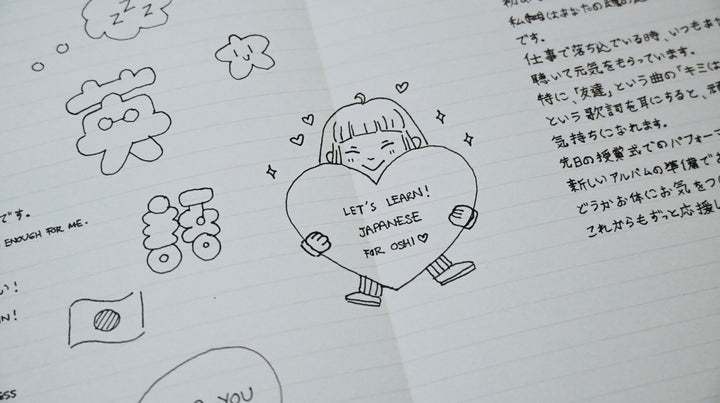 ZZZ
です。
ENOUGH FOR ME.
い!
N!
ESS
YOU
LET'S LEARN!
JAPANESE
FOR OSHI♡
はあなたの
です。
仕事で落ち込でいる時、いつも
聴いて元気をもらっています。
特に、「友達」という曲の「キミは
という歌詞を耳にすると、
気持ちになれます。
先日の授賞式でのパフォーマ
新しいアルバムの準備で
どうかお体にお気をつ
これからもずっと応援し